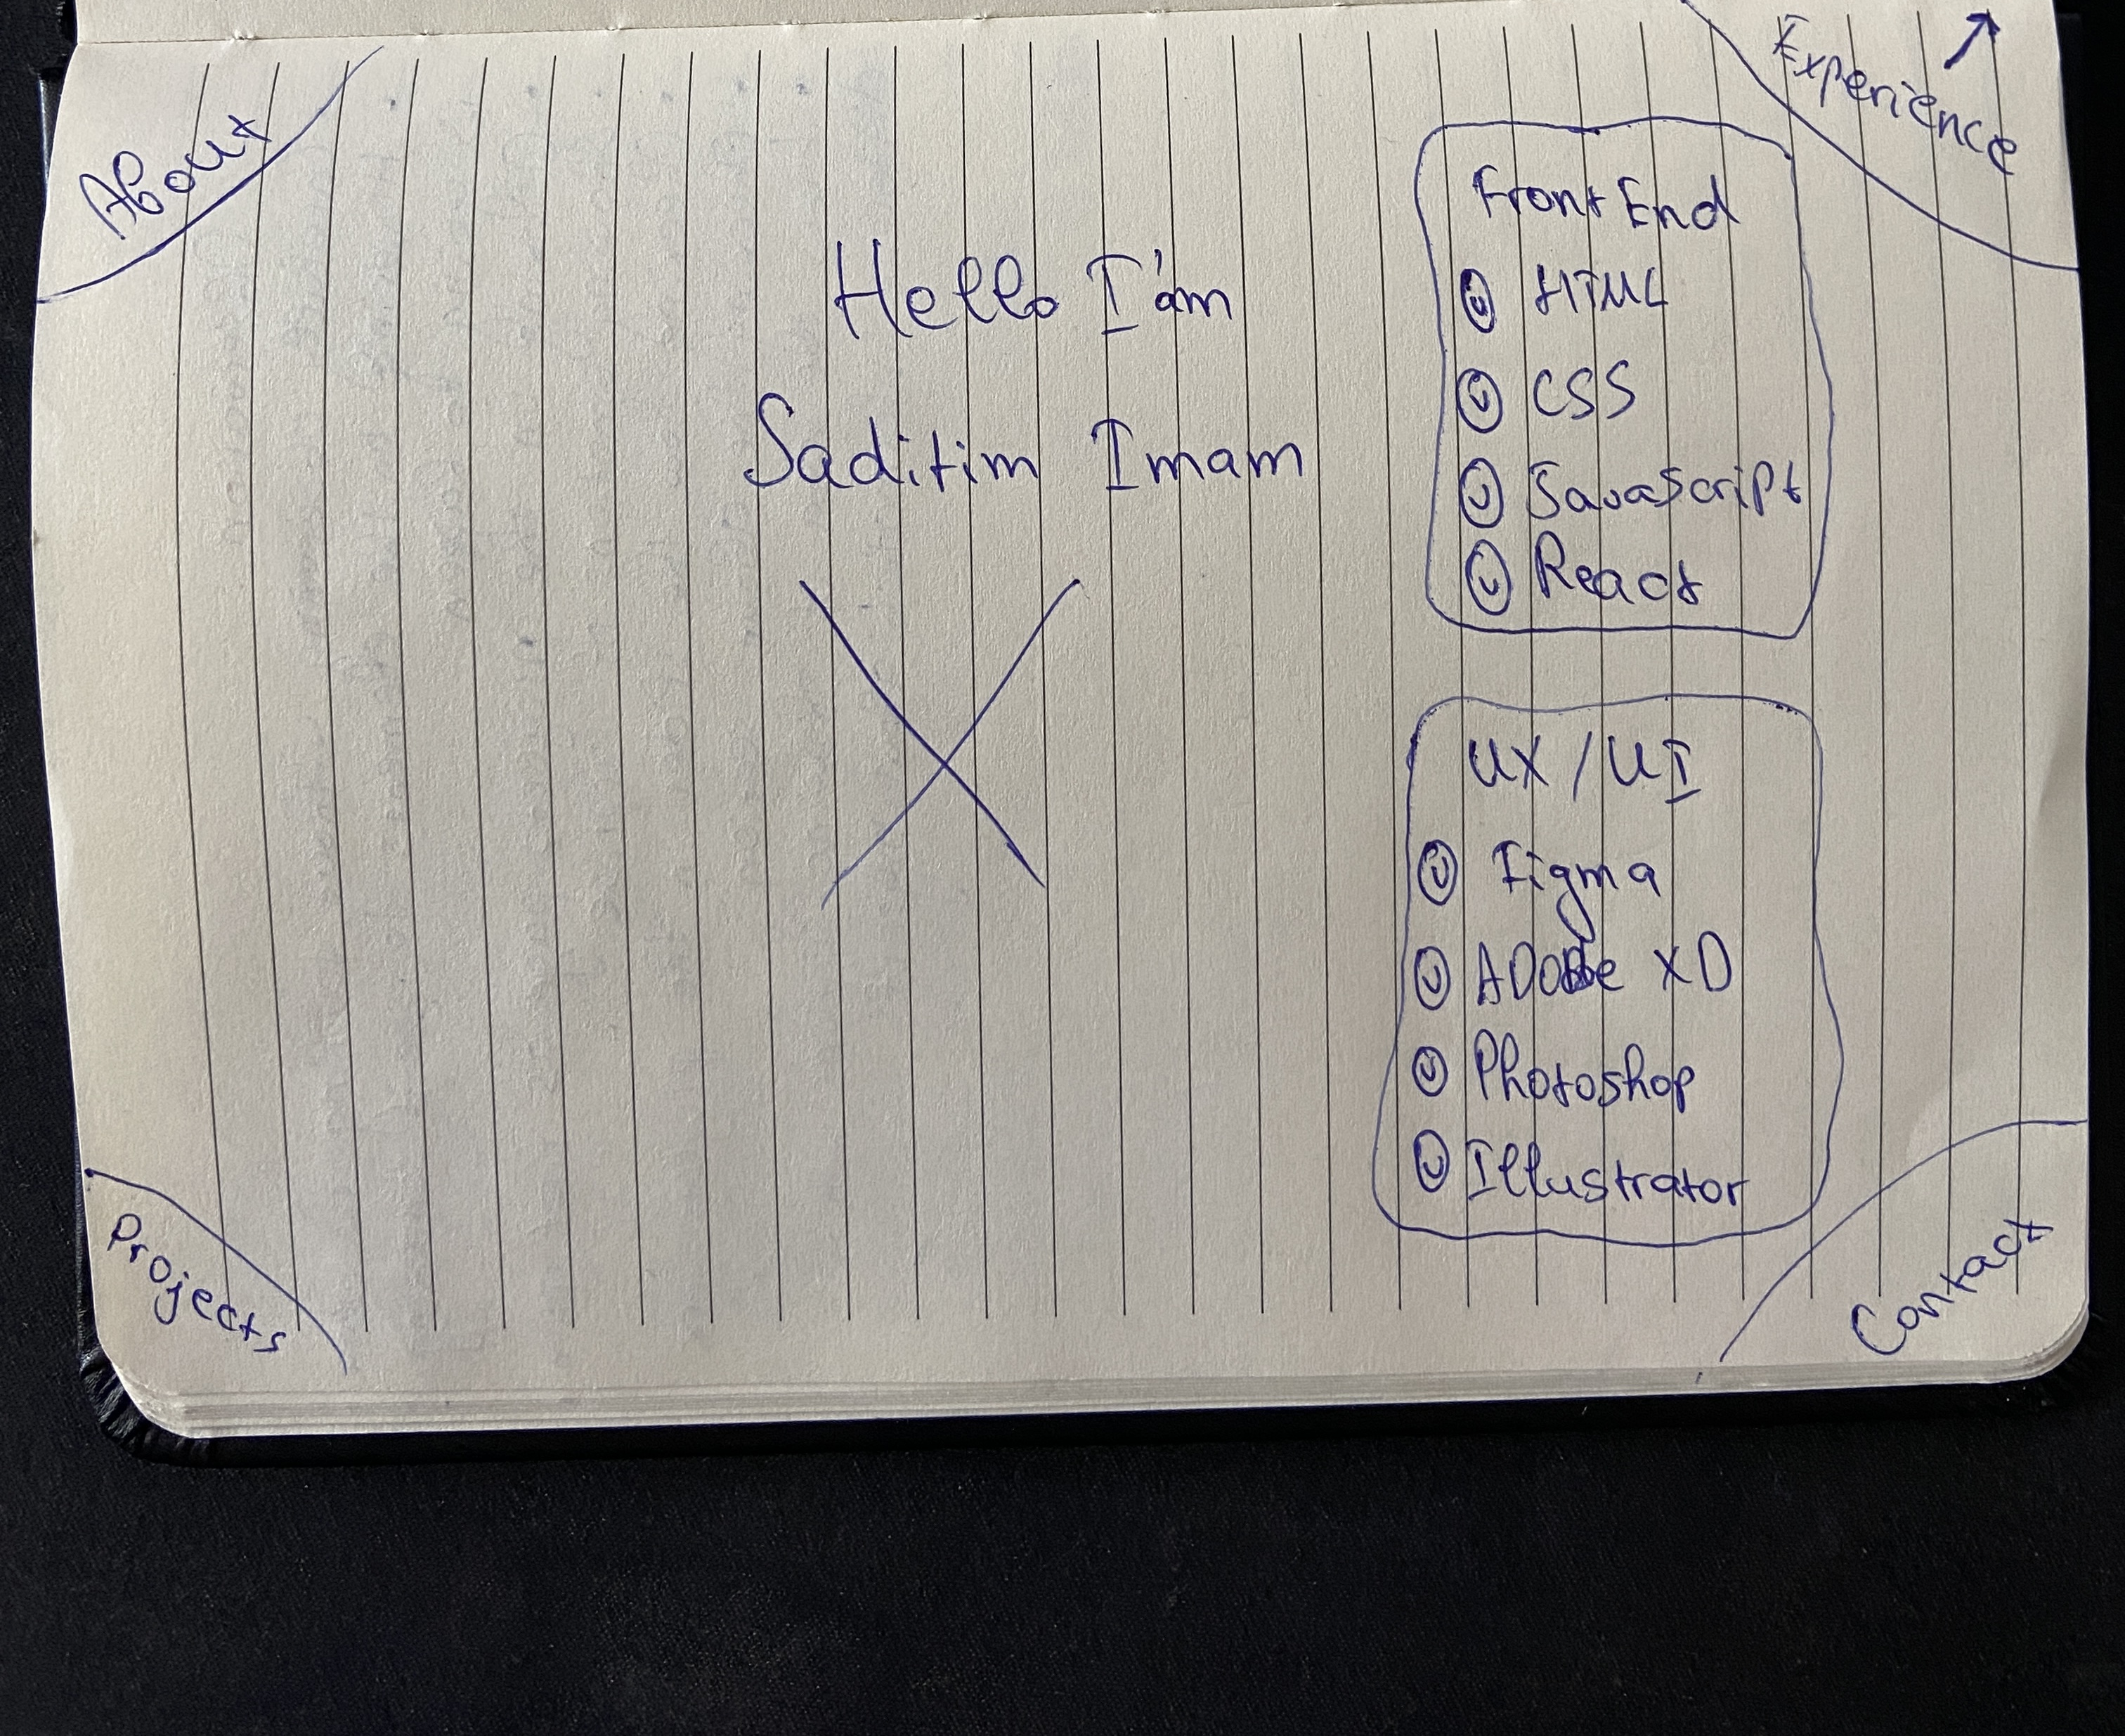 About
Experience
Hello I'am
Saditim Imam
Front End
HTML
CSS
JavaScript
React
UX / UI
Figma
ADobe XD
Photoshop
Illustrator
Projects
Contact